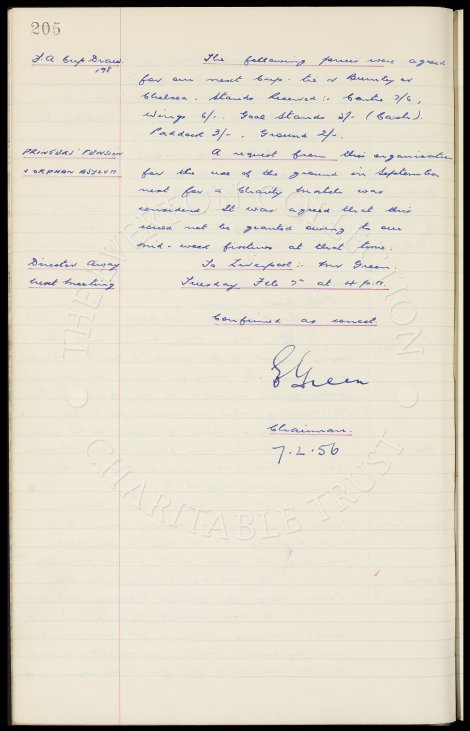 205
F A Cup Draw. 198
The following prices were agreed
for our next Cup-tie v Burnley or
Chelsea. Stands Reserved:- Centre 7/6,
Wings 6/-. Goal Stands 5/- (Cash).
Paddock 3/-. Ground 2/-.
PRINTERS' PENSION
& ORPHAN ASYLUM
A request from this organisation
for the use of the ground in September
next for a Charity Match was
considered. It was agreed that this
could not be granted owing to our
mid-week fixtures at that time.
Director Away
To Liverpool:- Mr Green.
Next Meeting
Tuesday Feb 7th at 4 p.m.
Confirmed as correct.
E Green
Chairman.
7.2.56
THE EVERTON COLLECTION
CHARITABLE TRUST